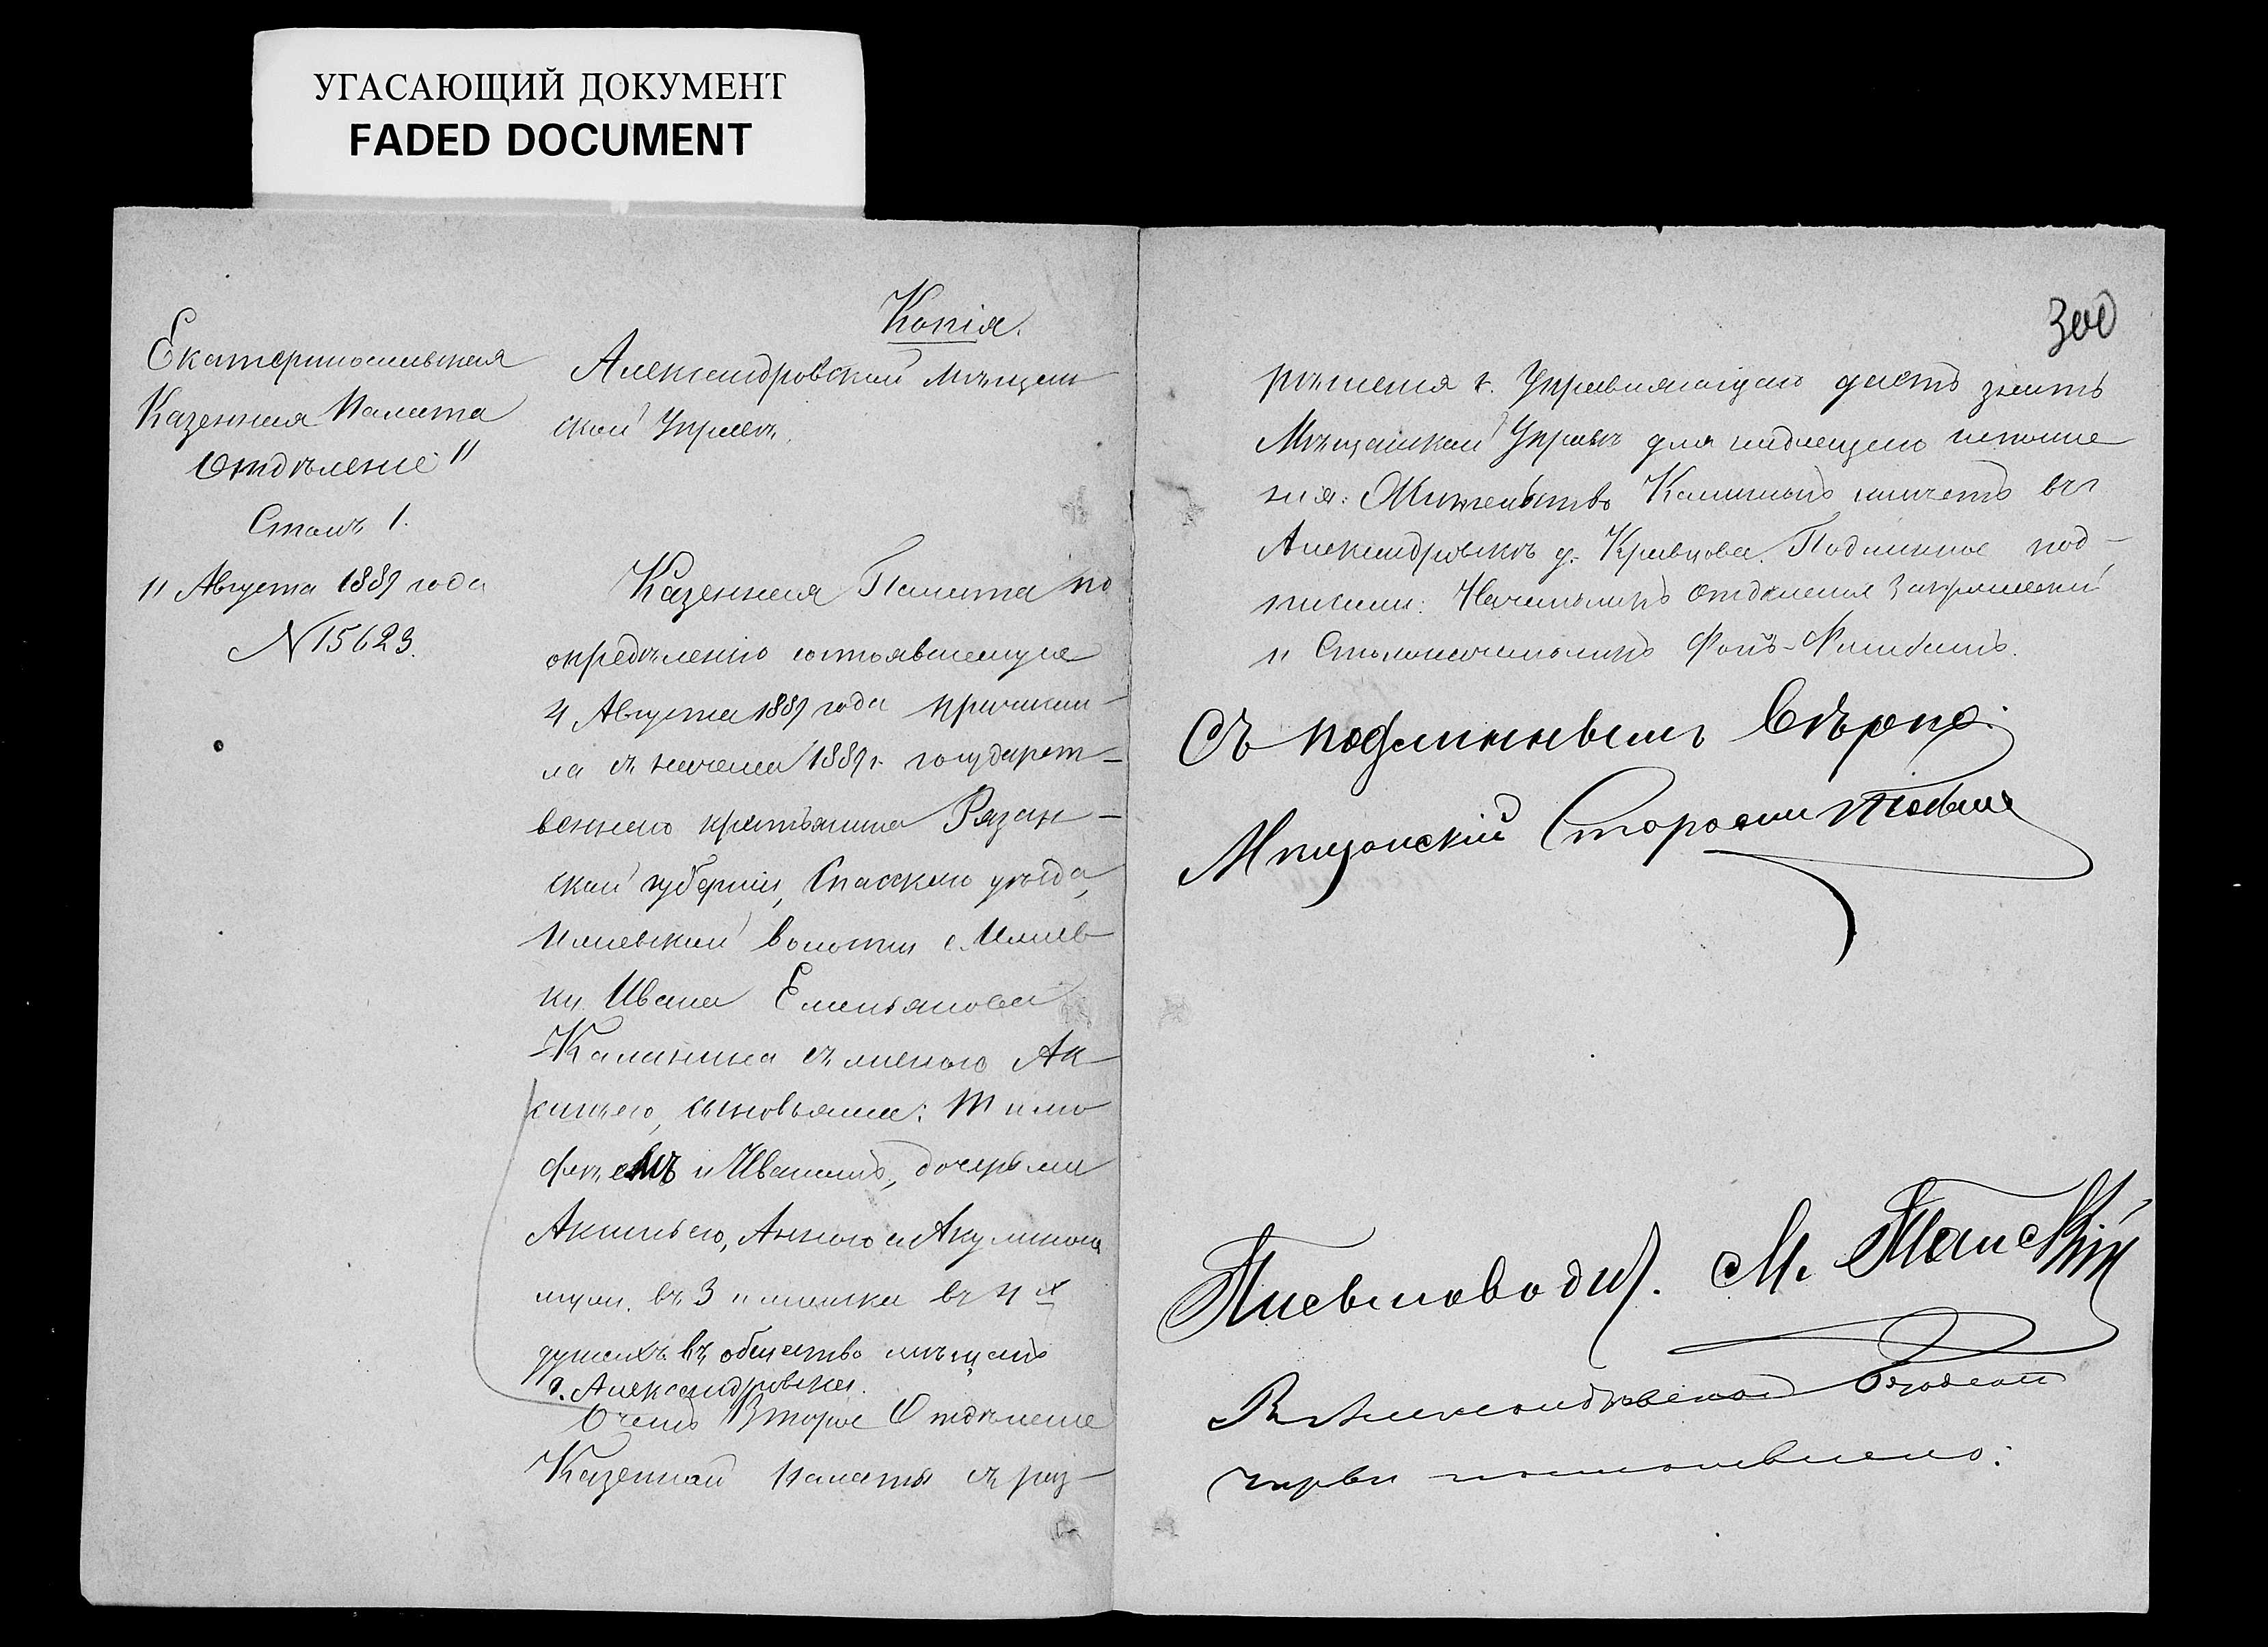 УГАСАЮЩИЙ ДОКУМЕНТ
FADED DOCUMENT
Копія.
Екатеринославская
Казенная Палата
Отдѣленіе II
Столъ 1.
11 Августа 1889 года
№ 15623.
Александровской Мѣщан
ской Управѣ.
Казенная Палата по
опредѣленію состоявшемуся
4 Августа 1889 года причисли-
ла съ начала 1889 г. государст-
веннаго крестьянина Рязан-
ской губерніи, Спасскаго уѣзда,
волости с.
ки Ивана Емельянова
Калинина съ женою Ак-
синьею, сыновьями: Тимо
феемъ и Иваномъ, дочерьми
Аксиньею, Анною и Акулиною
муж. въ 3 и женска въ 4х
душахъ въ общество мѣщанъ
г. Александровска.
О чемъ Второе Отдѣленіе
Казенной Палаты съ раз-
300
рѣшенія г. Управляющаго даетъ знать
Мѣщанской Управѣ для надлежащаго исполне
нія. Жительство Калининъ имѣетъ въ
Александровскѣ у. Кравцова. Подлинное под-
писали: Начальникъ Отдѣленія
и Столоначальникъ Фонъ-
Съ подлиннымъ Вѣрно:
Мѣщанскій Староста
Письмоводит. М.
В Александровской Городской
Управѣ